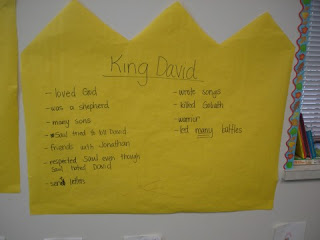 King David
- loved God
- was a shepherd
- many sons
- Saul tried to kill David
- friends with Jonathan
- respected Saul even though
Saul hated David
- letters
- wrote songs
- killed Goliath
- warrior
- led many battles